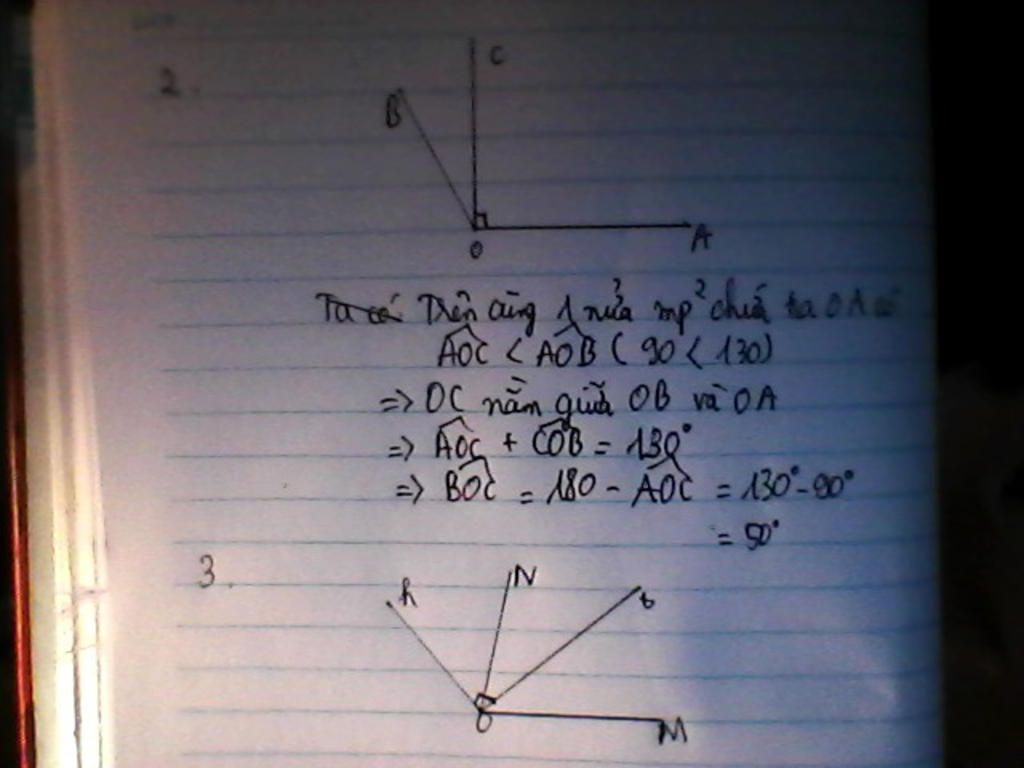 2.
C
B
O
A
Ta có Trên cùng 1 nửa mp² chứa tia OA có
AOC < AOB ( 90 < 130)
=> OC nằm giữa OB và OA
=> AOC + COB = 130°
=> BOC = 180 - AOC = 130° - 90°
= 50°
3.
h
N
t
O
M